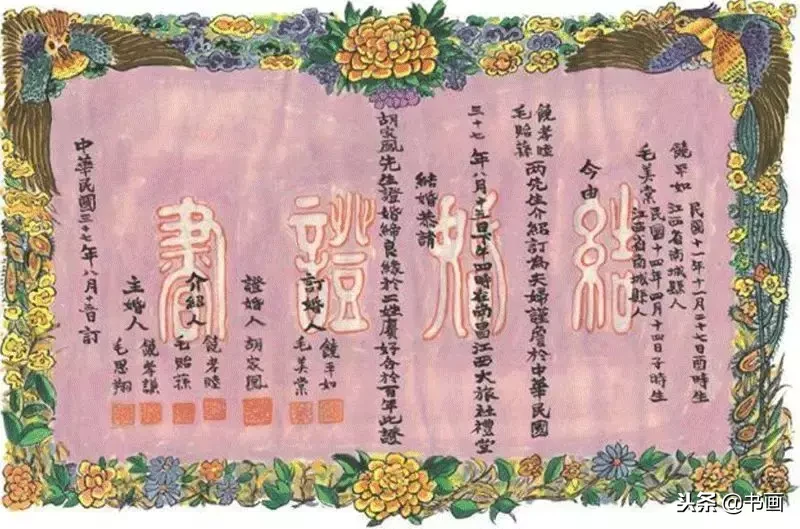 饒平如 民國十一年十一月二十七日酉時生
江西省南城縣人
毛美棠 民國十四年四月十四日子時生
江西省南城縣人
今由
饒孝睦
毛貽蓀 两先生介紹訂為夫婦謹詹於中華民國
三十七年八月十五日下午四時在南昌江西大旅社禮堂
結婚恭請
胡家鳳先生證婚締良緣於二姓賡好合於百年此證
結婚證書
訂婚人 饒平如
毛美棠
證婚人 胡家鳳
介紹人 饒孝睦
毛貽蓀
主婚人 饒孝謙
毛思翔
中華民國三十七年八月十五日訂
头条 @书画